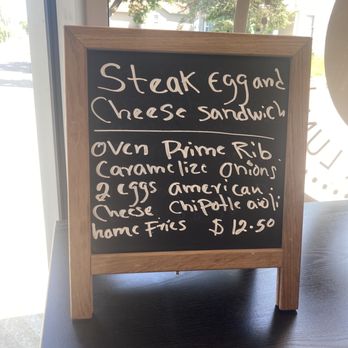 Steak Egg and
Cheese Sandwich
Oven Prime Rib.
Caramelize Onions
2 eggs american.
Cheese Chipotle aioli
home Fries $12.50